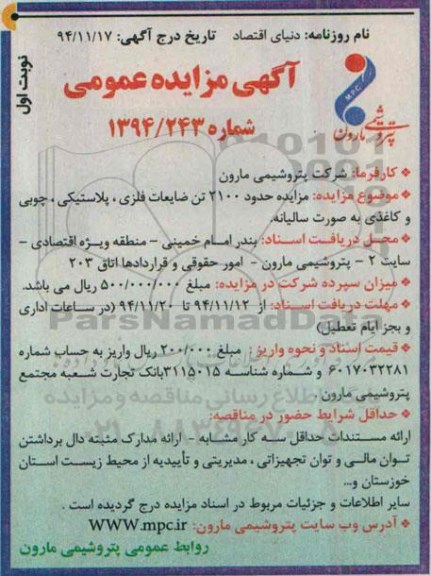 نام روزنامه: دنیای اقتصاد تاریخ درج آگهی: ۹۴/۱۱/۱۷
نوبت اول
MPC
پتروشیمی مارون
آگهی مزایده عمومی
شماره ۱۳۹۴/۲۴۳
کارفرما: شرکت پتروشیمی مارون
موضوع مزایده: مزایده حدود ۲۱۰۰ تن ضایعات فلزی ، پلاستیکی ، چوبی
و کاغذی به صورت سالیانه.
محل دریافت اسناد: بندر امام خمینی - منطقه ویژه اقتصادی -
سایت ۲ - پتروشیمی مارون - امور حقوقی و قراردادها اتاق ۲۰۳
میزان سپرده شرکت در مزایده: مبلغ ۵۰۰/۰۰۰/۰۰۰ ریال می باشد.
مهلت دریافت اسناد: از ۹۴/۱۱/۱۲ تا ۹۴/۱۱/۲۰ (در ساعات اداری
و بجز ایام تعطیل)
ParsNamadData
قیمت اسناد و نحوه واریز: مبلغ ۲۰۰/۰۰۰ ریال واریز به حساب شماره
۶۰۱۷۰۳۲۲۸۱ و شماره شناسه ۳۱۱۵۰۱۵ بانک تجارت شعبه مجتمع
پتروشیمی مارون.
حداقل شرایط حضور در مناقصه:
ارائه مستندات حداقل سه کار مشابه - ارائه مدارک مثبته دال برداشتن
توان مالی و توان تجهیزاتی ، مدیریتی و تأییدیه از محیط زیست استان
خوزستان و...
سایر اطلاعات و جزئیات مربوط در اسناد مزایده درج گردیده است .
آدرس وب سایت پتروشیمی مارون: WWW.mpc.ir
روابط عمومی پتروشیمی مارون